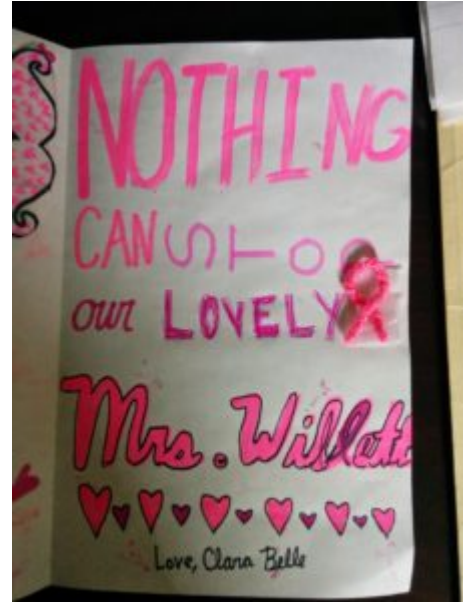 NOTHING
CAN STOP
our LOVELY
Mrs. Willett
Love, Clara Belle